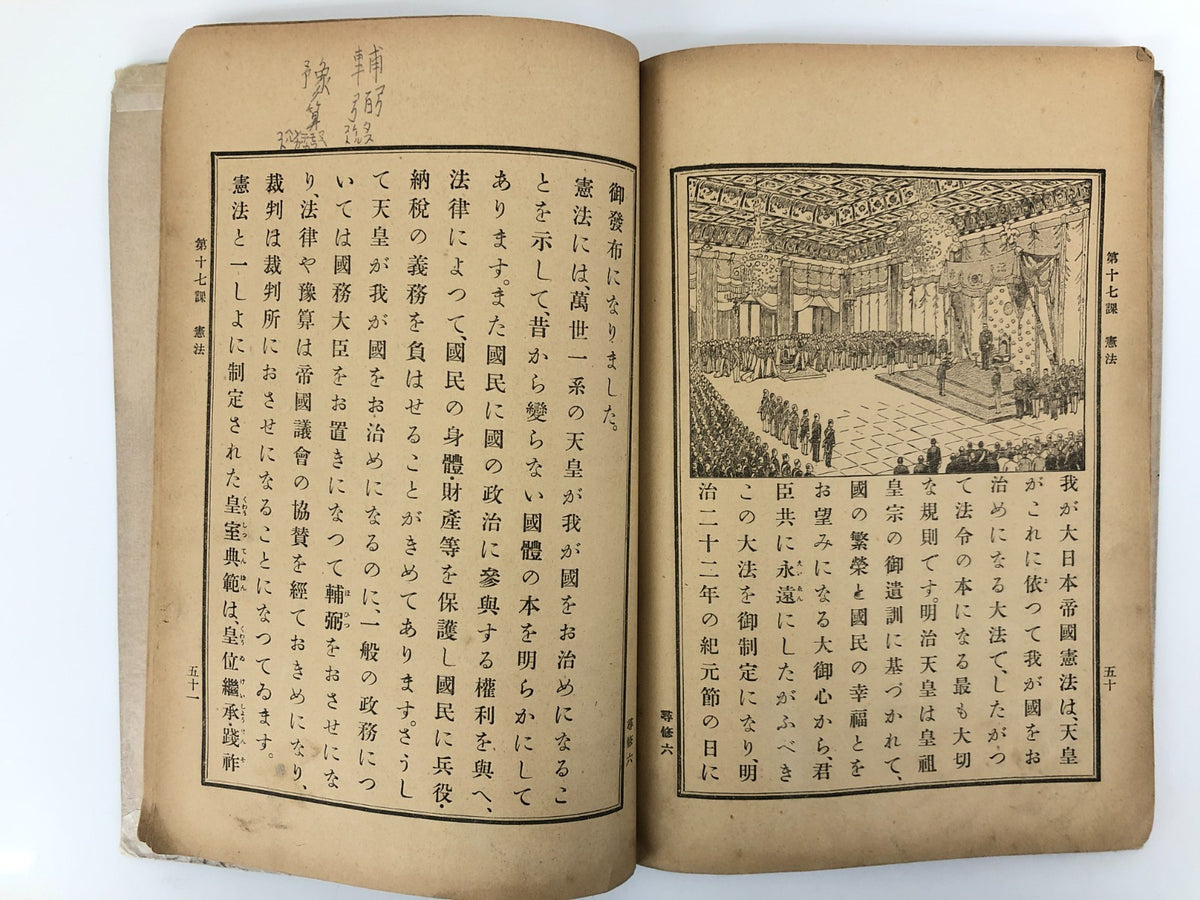 第十七課 憲法
五十
我が大日本帝國憲法は、天皇
がこれに依つて我が國をお
治めになる大法で、したがつ
て法令の本になる最も大切
な規則です。明治天皇は皇祖
皇宗の御遺訓に基づかれて、
國の繁榮と國民の幸福とを
お望みになる大御心から、君
臣共に永遠にしたがふべき
この大法を御制定になり、明
治二十二年の紀元節の日に
尋修六
尋修六
輔弼
豫算
御發布になりました。
憲法には、萬世一系の天皇が我が國をお治めになるこ
とを示して、昔から變らない國體の本を明らかにして
あります。また國民に國の政治に參與する權利を與へ、
法律によつて、國民の身體・財產等を保護し國民に兵役・
納稅の義務を負はせることがきめてあります。さうし
て天皇が我が國をお治めになるのに、一般の政務につ
いては國務大臣をお置きになつて輔弼をおさせにな
り、法律や豫算は帝國議會の協贊を經ておきめになり、
裁判は裁判所におさせになることになつてゐます。
憲法と一しよに制定された皇室典範は、皇位繼承・踐祚
第十七課 憲法
五十一